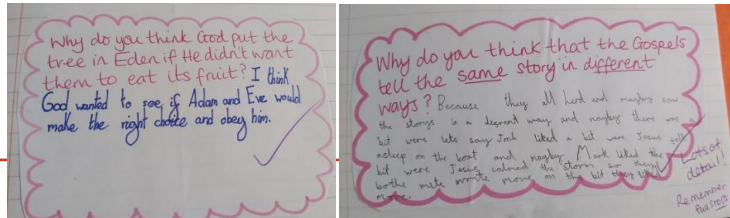 Why do you think God put the
tree in Eden if He didn't want
them to eat its fruit? I think
God wanted to see if Adam and Eve would
make the right choice and obey him.
Why do you think that the Gospels
tell the same story in different
ways? Because they all herd and maybey saw
the storys in a degrent way and maybey there was a
bit were lets say Jonh liked a bit were Jesus fell
asleep on the boat and maybey Mark liked the
bit were Jesus calmed the storm so they
bothe mete wrote more on the bit they liked
more.
Lots of
detail!
Remember
full stops